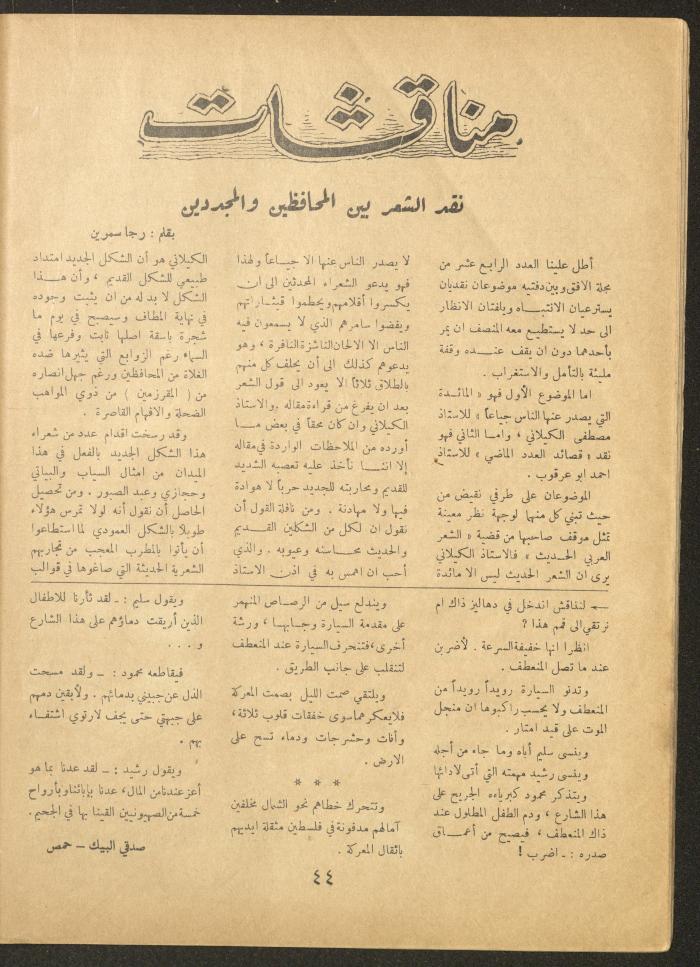 مناقشات
نقد الشعر بين المحافظين والمجددين
بقلم : رجا سمرين
أطل علينا العدد الرابع عشر من
مجلة الافق وبين دفتيه موضوعان نقديان
يسترعيان الانتبـاه ويلفتان الانظار
الى حد لا يستطيع معه المنصف ان يمر
بأحدهما دون ان يقف عنـده وقفة
مليئة بالتأمل والاستغراب .
اما الموضوع الأول فهو « المائـدة
التي يصدر عنها الناس جياعاً » للاستاذ
مصطفى الكيلاني ، واما الثاني فهو
نقد « قصائد العدد الماضي » للاستاذ
احمد ابو عرقوب .
الموضوعان على طرفي نقيض من
حيث تبني كل منهما لوجهة نظر معينة
تمثل موقف صاحبها من قضية « الشعر
العربي الحـديث » فالاستاذ الكيلاني
يرى ان الشعر الحديث ليس الا مائدة
لا يصدر الناس عنها الا جيـاعاً ولهذا
فهو يدعو الشعراء المحدثين الى ان
يكسروا أقلامهم ويحطموا قيثاراتهم
ويفضوا سامرهم الذي لا يسمعون فيه
الناس الا الالحان الناشزة النافرة ، وهو
يدعوهم كذلك الى أن يحلف كل منهم
بالطلاق ثلاثاً الا يعود الى قول الشعر
بعد ان يفرغ من قراءة مقاله . والاستاذ
الكيلاني وان كان محقاً في بعض مـا
أورده من الملاحظات الواردة في مقاله
إلا اننـا نأخذ عليه تعصبه الشديد
للقديم ومحاربته للجديد حرباً لا هوادة
فيها ولا مهادنة . ومن نافلة القول أن
نقول ان لكل من الشكلين القـديم
والحديث محـاسنه وعيوبه . والذي
أحب ان اهمس به في اذن الاستاذ
الكيلاني هو أن الشكل الجديد امتداد
طبيعي للشكل القديم ، وأن هـذا
الشكل لا بد له من ان يثبت وجوده
في نهاية المطاف وسيصبح في يوم ما
شجرة باسقة اصلها ثابت وفرعها في
السماء رغم الزوابع التي يثيرها ضده
الغلاة من المحافظين ورغم جهل انصاره
من ( المقرزمين ) من ذوي المواهب
الضحلة والافهام القاصرة .
وقد رسخت اقدام عدد من شعراء
هذا الشكل الجديد بالفعل في هذا
الميدان من امثال السياب والبياتي
وحجازي وعبد الصبور . ومن تحصيل
الحاصل أن نقول أنه لولا تمرس هؤلاء
طويلاً بالشكل العمودي لما استطاعوا
أن يأتوا بالمطرب المعجب من تجاربهم
الشعرية الحديثة التي صاغوها في قوالب
← لنناقش اندخل في دهاليز ذاك ام
نرتقي الى قمم هذا ؟
انظرا انها خفيفة السرعة . لأضربن
عند ما تصل المنعطف .
وتدنو السيارة رويداً رويداً من
المنعطف ولا يحسب راكبوها ان منجل
الموت على قيد امتار .
وينسى سليم أباه وما جاء من أجله
وينسى رشيد مهمته التي أتى لادائها
ويتذكر محمود كبرياءه الجريح على
هذا الشارع ، ودم الطفل المطلول عند
ذاك المنعطف ، فيصيح من أعمـاق
صدره : ـ اضرب !
ويندلع سيل من الرصاص المنهمر
على مقدمة السيارة وجانبيها ، ورشة
أخرى ، فتنحرف السيارة عند المنعطف
لتنقلب على جانب الطريق .
ويلتقي صمت الليل بصمت المعركة
فلا يعكرهما سوى خفقات قلوب ثلاثة ،
وأنات وحشرجات ودماء تسح على
الارض .
* * *
وتتحرك خطاهم نحو الشمال مخلفين
آمالهم مدفونة في فلسطين مثقلة ايديهم
بأثقال المعركة .
ويقول سليم : ـ لقد ثأرنا للاطفال
الذين أريقت دماؤهم على هذا الشارع
و . . .
فيقاطعه محمود : ـ ولقد مسحت
الذل عن جبيني بدمائهم . ولأبقين دمهم
على جبهتي حتى يجف لارتوي اشتفـاء
بهم .
ويقول رشيد : ـ لقد عدنا بما هو
أعز عندنا من المال ، عدنا بإبائنا وبأرواح
خمسة من الصهيونيين القينا بها في الجحيم .
صدقي البيك – حمص
٤٤